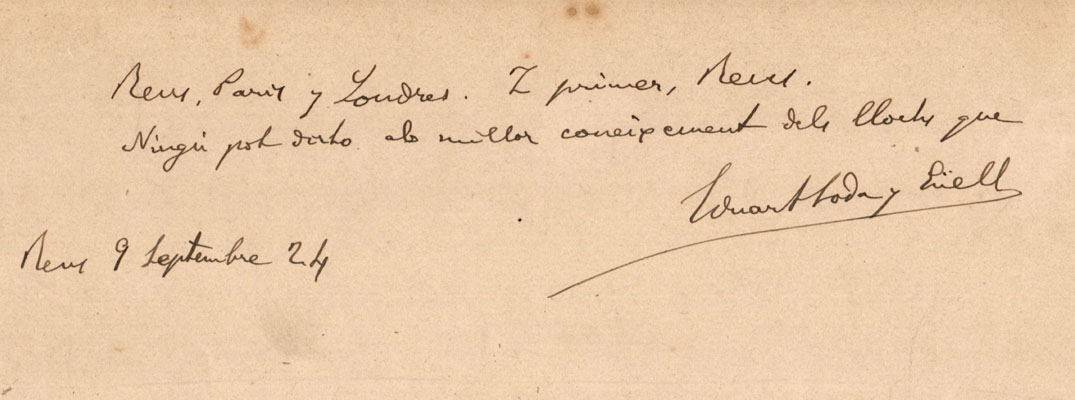 Reus, Paris y Londres. I primer, Reus.
Ningú pot dirho ab millor coneixement dels llochs que
Eduart Toda y Güell
Reus 9 Septembre 24